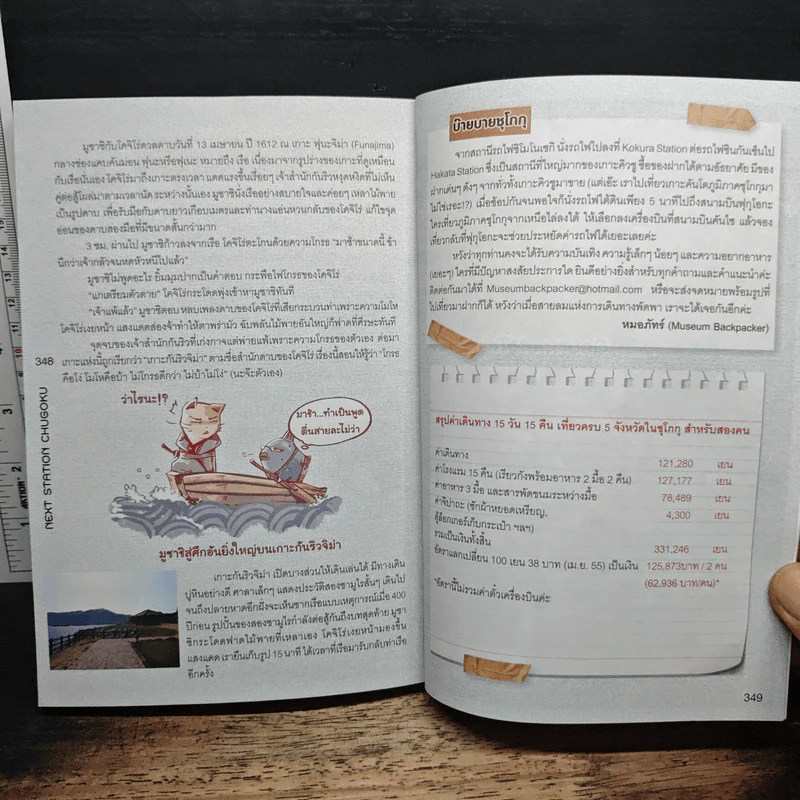 มูซาชิกับโคจิโร่ดวลดาบวันที่ 13 เมษายน ปี 1612 ณ เกาะ ฟุนะจิม่า (Funajima)
กลางช่องแคบคันม่อน ฟุนะหรือฟุเนะ หมายถึง เรือ เนื่องมาจากรูปร่างของเกาะที่ดูเหมือน
กับเรือนั่นเอง โคจิโร่มาถึงเกาะตรงเวลา แดดแรงขึ้นเรื่อยๆ เจ้าสำนักกันริวหงุดหงิดที่ไม่เห็น
คู่ต่อสู้โผล่มาตามเวลานัด ระหว่างนั้นเอง มูซาชินั่งเรืออย่างสบายใจและค่อยๆ เหลาไม้พาย
เป็นรูปดาบ เพื่อรับมือกับดาบยาวเกือบเมตรและทำนางแอ่นหวนกลับของโคจิโร่ แก้ไขจุด
อ่อนของดาบสองมือที่มีขนาดสั้นกว่ามาก
3 ชม. ผ่านไป มูซาชิก้าวลงจากเรือ โคจิโร่ตะโกนด้วยความโกรธ "มาช้าขนาดนี้ ข้า
นึกว่าเจ้ากลัวจนหดหัวหนีไปแล้ว"
มูซาชิไม่พูดอะไร ยิ้มมุมปากเป็นคำตอบ กระพือไฟโกรธของโคจิโร่
"แกเตรียมตัวตาย" โคจิโร่กระโดดพุ่งเข้าหามูซาชิทันที
"เจ้าแพ้แล้ว" มูซาชิตอบ หลบเพลงดาบของโคจิโร่ที่เสียกระบวนท่าเพราะความโมโห
โคจิโร่เงยหน้า แสงแดดส่องจ้าทำให้ตาพร่ามัว ฉับพลันไม้พายอันใหญ่ก็ฟาดที่ศีรษะทันที
จุดจบของเจ้าสำนักกันริวที่เก่งกาจแต่พ่ายแพ้เพราะความโกรธของตัวเอง ต่อมา
เกาะแห่งนี้ถูกเรียกว่า "เกาะกันริวจิม่า" ตามชื่อสำนักดาบของโคจิโร่ เรื่องนี้สอนให้รู้ว่า "โกรธ
คือโง่ โมโหคือบ้า ไม่โกรธดีกว่า ไม่บ้าไม่โง่" (นะจ๊ะตัวเอง)
348
NEXT STATION CHUGOKU
ว่าไรนะ!?
มาช้า...ทำเป็นพูด
ตื่นสายละไม่ว่า
มูซาชิสู่ศึกอันยิ่งใหญ่บนเกาะกันริวจิม่า
เกาะกันริวจิม่า เปิดบางส่วนให้เดินเล่นได้ มีทางเดิน
ปูหินอย่างดี ศาลาเล็กๆ แสดงประวัติสองซามูไรสั้นๆ เดินไป
จนถึงปลายหาดอีกฝั่งจะเห็นซากเรือแบบเหตุการณ์เมื่อ 400
ปีก่อน รูปปั้นของสองซามูไรกำลังต่อสู้กันถึงบทสุดท้าย มูซา
ชิกระโดดฟาดไม้พายที่เหลาเอง โคจิโร่เงยหน้ามองขึ้น
แสงแดด เรายืนเก็บรูป 15 นาที ได้เวลาที่เรือมารับกลับท่าเรือ
อีกครั้ง
บ๊ายบายชูโกกุ
จากสถานีรถไฟชิโมโนเซกิ นั่งรถไฟไปลงที่ Kokura Station ต่อรถไฟชินกันเซ็นไป
Hakata Station ซึ่งเป็นสถานีที่ใหญ่มากของเกาะคิวชู ซื้อของฝากได้ตามอัธยาศัย มีของ
ฝากเด่นๆ ดังๆ จากทั่วทั้งเกาะคิวชูมาขาย (แต่เอ๊ะ เราไปเที่ยวเกาะคันไตภูมิภาคชูโกกุมา
ไม่ใช่เรอะ!?) เมื่อช้อปกันจนพอใจก็นั่งรถใต้ดินเพียง 5 นาทีไปถึงสนามบินฟุกุโอกะ
ใครเที่ยวภูมิภาคชูโกกุจากเหนือไล่ลงใต้ ให้เลือกลงเครื่องบินที่สนามบินคันไซ แล้วจอง
เที่ยวกลับที่ฟุกุโอกะจะช่วยประหยัดค่ารถไฟได้เยอะเลยค่ะ
หวังว่าทุกท่านคงจะได้รับความบันเทิง ความรู้เล็กๆ น้อยๆ และความอยากอาหาร
(เยอะๆ) ใครที่มีปัญหาสงสัยประการใด ยินดีอย่างยิ่งสำหรับทุกคำถามและคำแนะนำค่ะ
ติดต่อกันมาได้ที่ Museumbackpacker@hotmail.com หรือจะส่งจดหมายพร้อมรูปที่
ไปเที่ยวมาฝากก็ได้ หวังว่าเมื่อสายลมแห่งการเดินทางพัดพา เราจะได้เจอกันอีกค่ะ
หมอภัทร์ (Museum Backpacker)
สรุปค่าเดินทาง 15 วัน 15 คืน เที่ยวครบ 5 จังหวัดในชูโกกุ สำหรับสองคน
ค่าเดินทาง 121,280 เยน
ค่าโรงแรม 15 คืน (เรียวกังพร้อมอาหาร 2 มื้อ 2 คืน) 127,177 เยน
ค่าอาหาร 3 มื้อ และสารพัดขนมระหว่างมื้อ 78,489 เยน
ค่าจิปาถะ (ซักผ้าหยอดเหรียญ, 4,300 เยน
ตู้ล็อกเกอร์เก็บกระเป๋า ฯลฯ)
รวมเป็นเงินทั้งสิ้น 331,246 เยน
อัตราแลกเปลี่ยน 100 เยน 38 บาท (เม.ย. 55) เป็นเงิน 125,873บาท / 2 คน
(62,936 บาท/คน)*
*อัตรานี้ไม่รวมค่าตั๋วเครื่องบินค่ะ
349